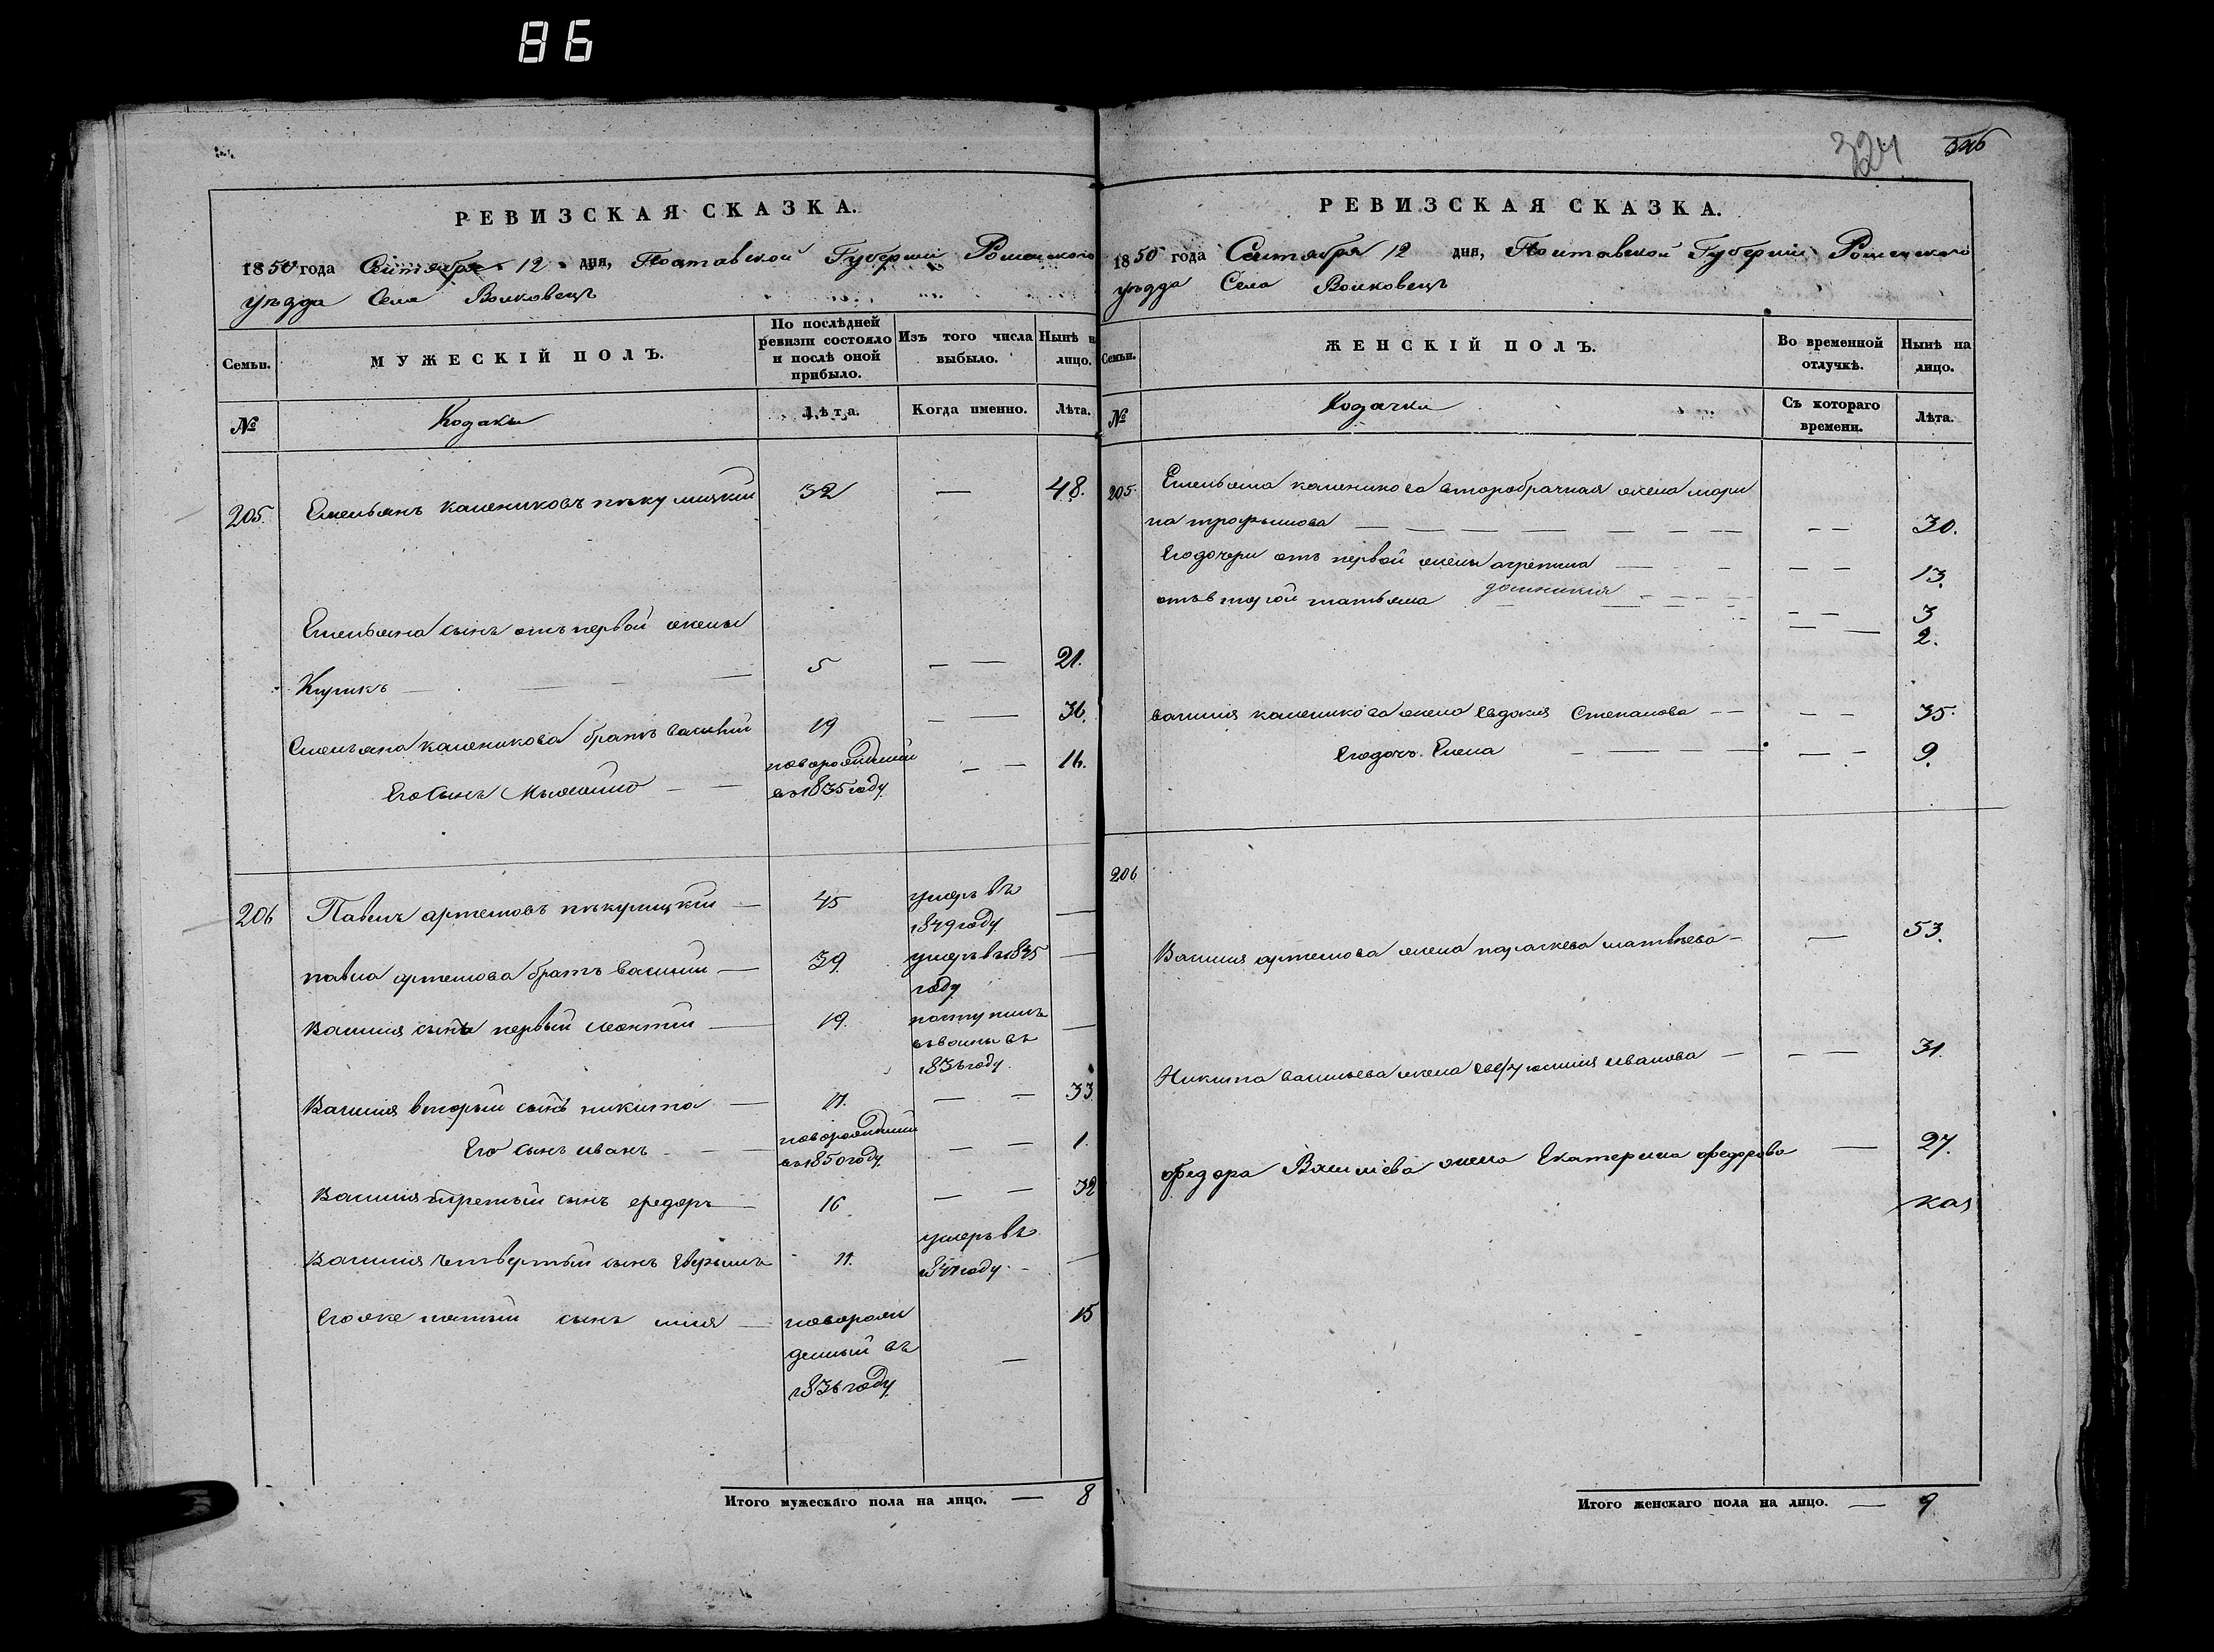 86
324
РЕВИЗСКАЯ СКАЗКА.
1850 года Сентября 12 дня, Полтавской Губернии Роменского
уѣзда Села Волковецъ
Семьи.
МУЖЕСКІЙ ПОЛЪ.
По послѣдней ревизіи состояло и послѣ оной прибыло.
Изъ того числа выбыло.
Нынѣ на лицо.
№
Козаки
Лѣта.
Когда именно.
Лѣта.
205. Емельянъ калениковъ 32 — 48.
Емельяна сынъ отъ первой жены
Кирикъ — 5 — — 21.
Емельяна каленикова братъ василій 19 — — 36.
Его сынъ новорожденный въ 1835 году — — 16.
206 Павелъ артемовъ — 45 умеръ въ 1849 году —
павла артемова братъ василии — 39. умеръ въ 1845 году —
Василия сынъ первый леонтий — 19. поступилъ въ 1836 году. —
Василия вторый сынъ никита — 17. — — 33
Его сынъ иванъ — новорожденный въ 1850 году — — 1.
Василия третый сынъ федоръ — 16 — — 32
Василия четвертый сынъ 11. умеръ въ 1841 году —
Его же пятый сынъ илия — новорожденный въ 1836 году — 15
Итого мужескаго пола на лицо. — 8
РЕВИЗСКАЯ СКАЗКА.
1850 года Сентября 12 дня, Полтавской Губерніи Роменского
уѣзда Села Волковецъ
Семьи.
ЖЕНСКІЙ ПОЛЪ.
Во временной отлучкѣ.
Нынѣ на лицо.
№
Козачки
Съ котораго времени.
Лѣта.
205. Емельяна каленикова второбрачная жена мари
на трофимова — — 30.
Его дочери отъ первой жены агрепина — — 13.
отъ второй татьяна — — 3
домникия — — 2.
василия каленикова жена Евдокия Степанова — — 35.
Его дочь Елена — — 9.
206
Василия артемова жена параскева матвѣева — — 53.
Никиты васильева жена иванова — — — 31.
федора Василиева жена Екатерина федорова — 27.
Итого женскаго пола на лицо. — 9